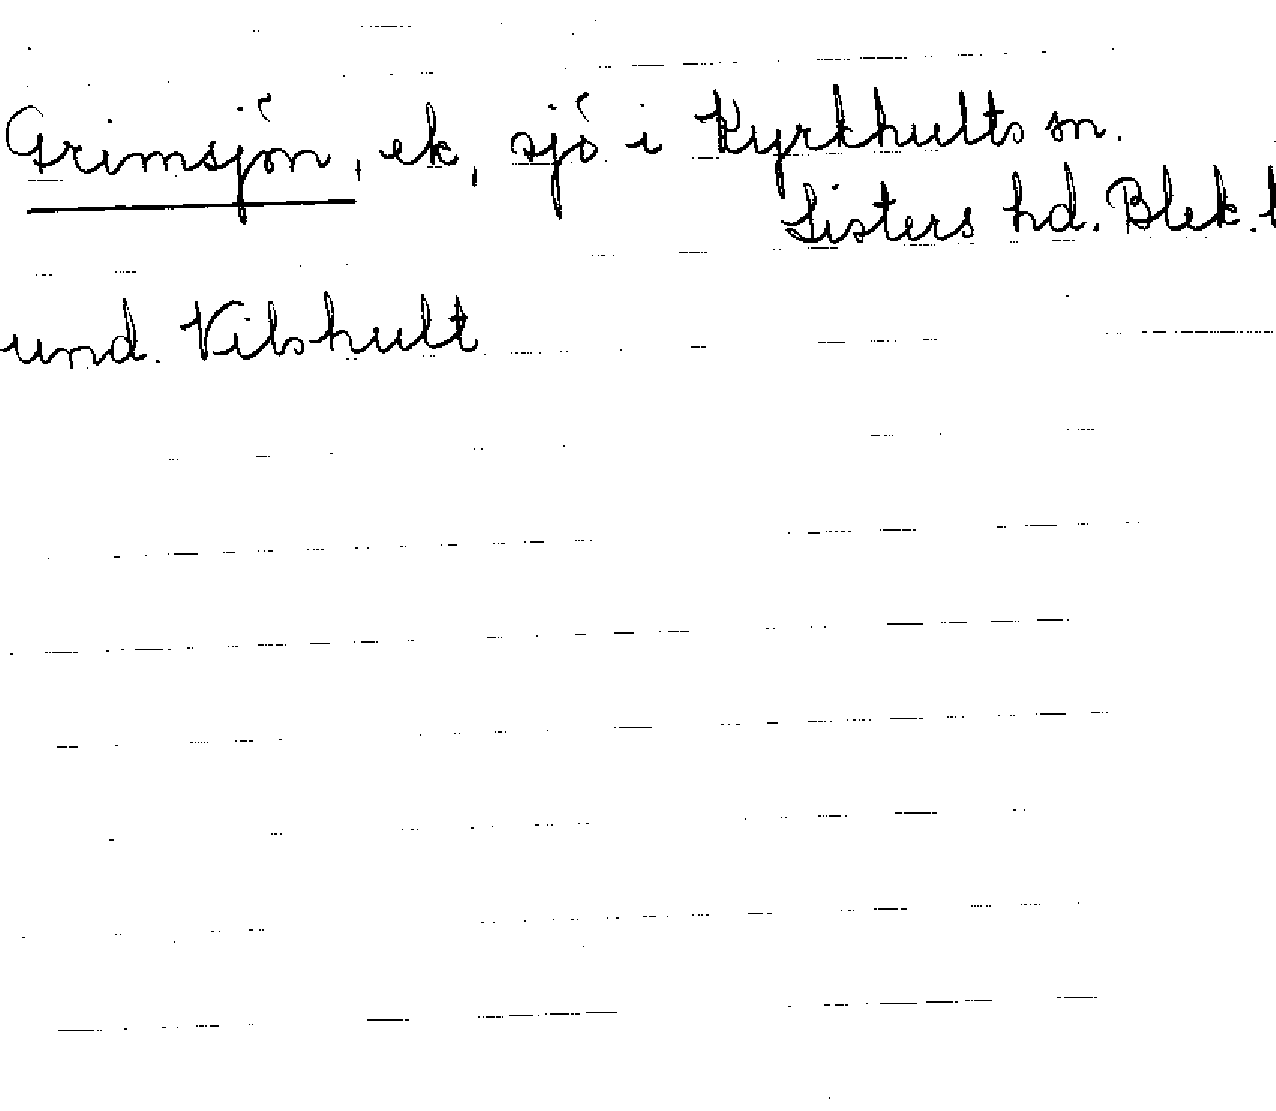 Grimsjön, ek, sjö i Kyrkhults sn.
Listers hd. Blek.
und. Vilshult